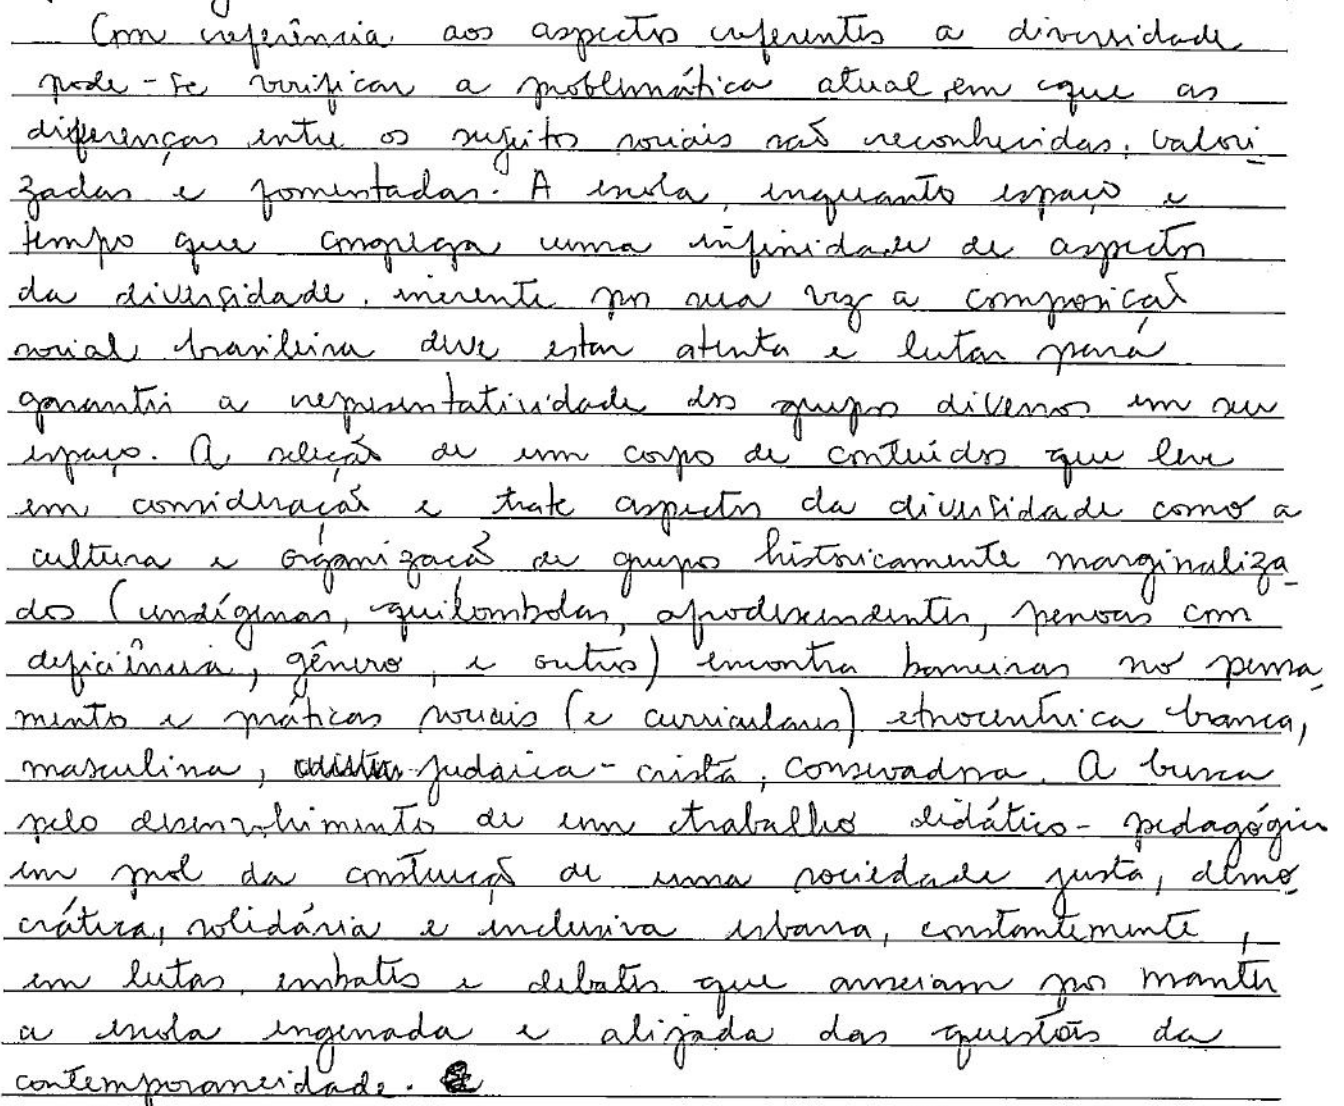 Com referência aos aspectos referentes a diversidade
pode-se verificar a problemática atual, em que as
diferenças entre os sujeitos sociais são reconhecidas, valori
zadas e fomentadas. A escola, enquanto espaço e
tempo que congrega uma infinidade de aspectos
da diversidade, inerente por sua vez a composição
social brasileira deve estar atenta e lutar para
garantir a representatividade dos grupos diversos em seu
espaço. A seleção de um corpo de conteúdos que leve
em consideração e trate aspectos da diversidade como a
cultura e organização de grupos historicamente marginaliza
dos (indígenas, quilombolas, afrodescendentes, pessoas com
deficiência, gênero, e outros) encontra barreiras no pensa
mento e práticas sociais (e curriculares) etnocentrica branca,
masculina, judaica-cristã, conservadora. A busca
pelo desenvolvimento de um trabalho didático-pedagógico
em prol da construção de uma sociedade justa, demo
crática, solidária e inclusiva esbarra, constantemente,
em lutas, embates e debates que anseiam por manter
a escola engessada e alijada das questões da
contemporaneidade.